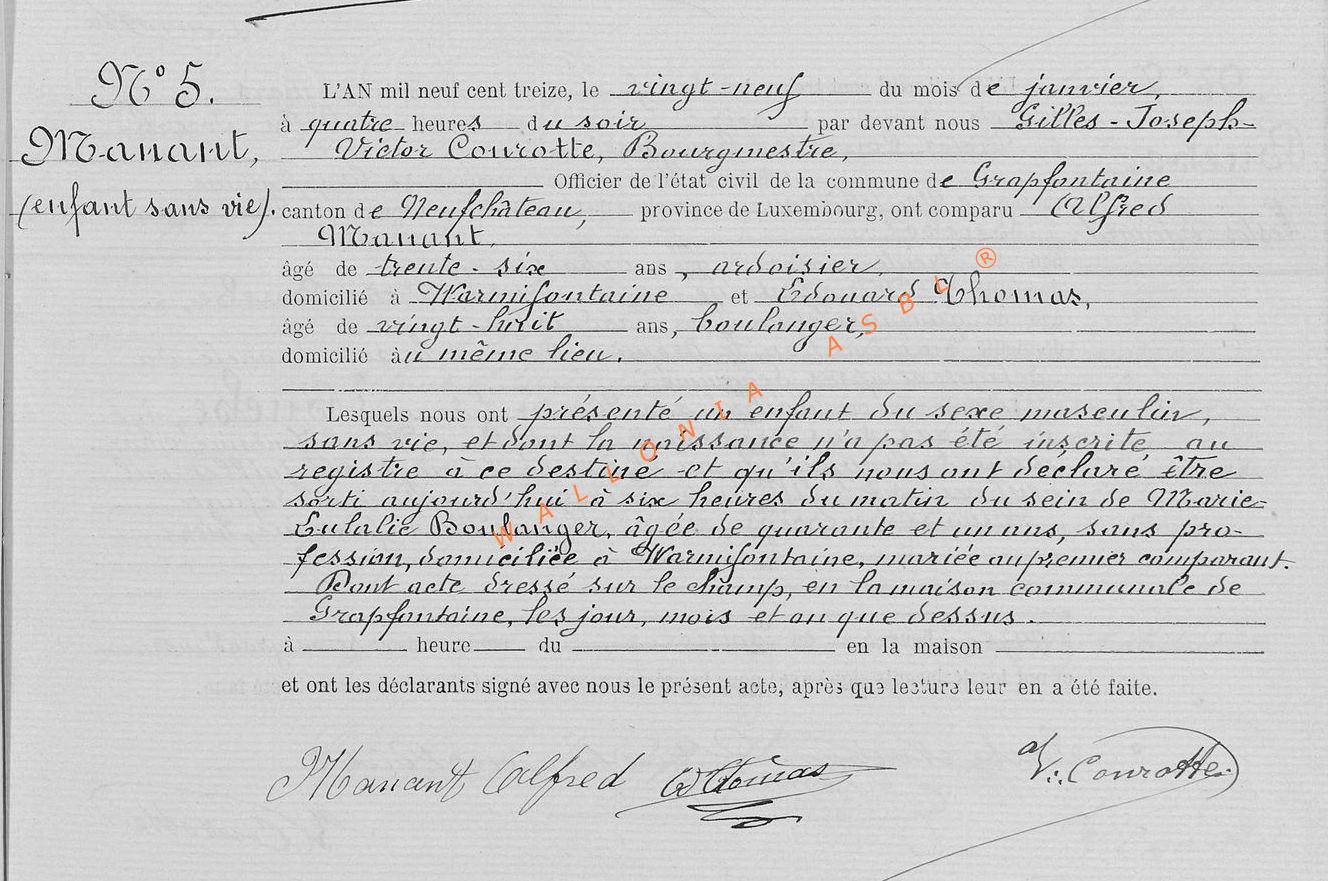 N° 5.
Manant,
(enfant sans vie).
L'AN mil neuf cent treize, le vingt-neuf du mois de janvier,
à quatre heures du soir par devant nous Gilles-Joseph-
Victor Courotte, Bourgmestre,
Officier de l'état civil de la commune de Grapfontaine
canton de Neufchâteau, province de Luxembourg, ont comparu Alfred
Manant,
âgé de trente-six ans, ardoisier,
domicilié à Warmifontaine et Edouard Thomas,
âgé de vingt-huit ans, boulanger,
domicilié au même lieu.
Lesquels nous ont présenté un enfant du sexe masculin,
sans vie, et dont la naissance n'a pas été inscrite au
registre à ce destiné et qu'ils nous ont déclaré être
sorti aujourd'hui à six heures du matin du sein de Marie-
Eulalie Boulanger, âgée de quarante et un ans, sans pro-
fession, domiciliée à Warmifontaine, mariée au premier comparant.
Dont acte dressé sur le champ, en la maison communale de
Grapfontaine, les jour, mois et an que dessus.
à heure du en la maison
et ont les déclarants signé avec nous le présent acte, après que lecture leur en a été faite.
Manant Alfred Thomas V. Courotte
WALLONIA ASBL ®